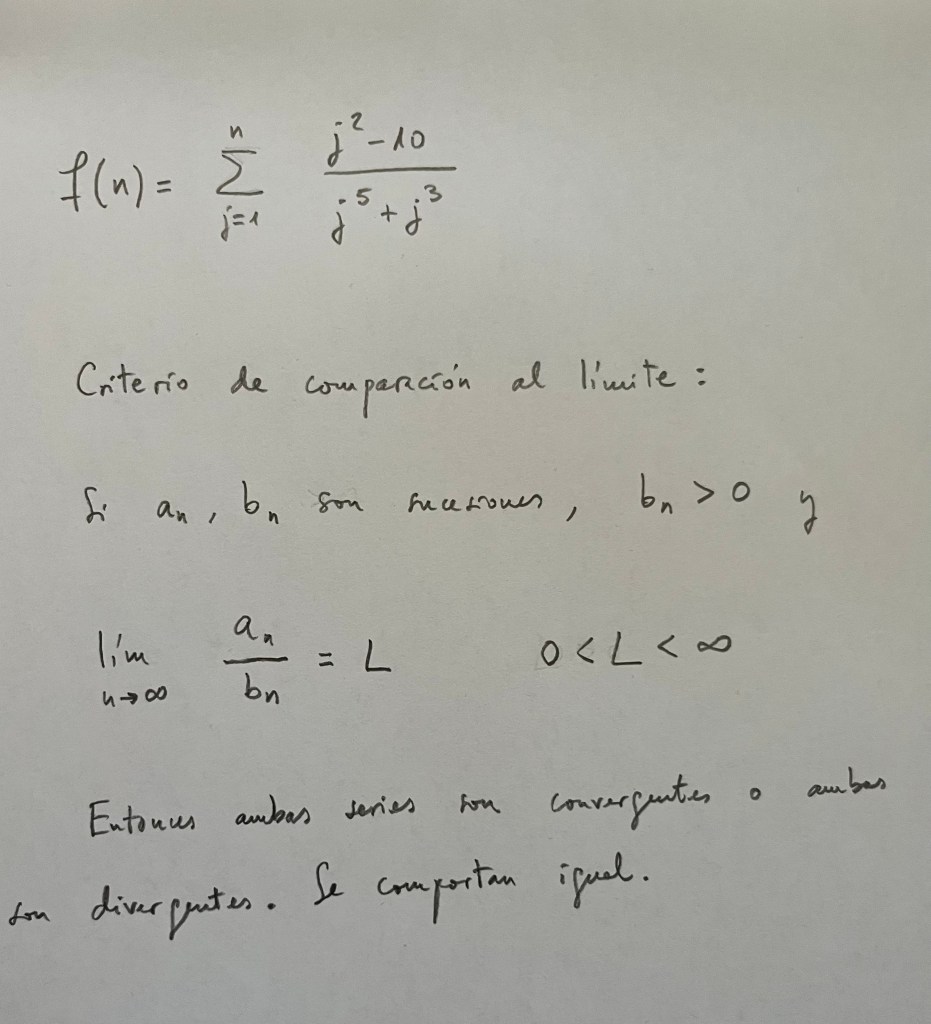 f(n) = \sum_{j=1}^{n} \frac{j^2 - 10}{j^5 + j^3}
Criterio de comparación al límite :
Si a_n , b_n son sucesiones , b_n > 0 y
\lim_{n \to \infty} \frac{a_n}{b_n} = L 0 < L < \infty
Entonces ambas series son convergentes o ambas
son divergentes. Se comportan igual.